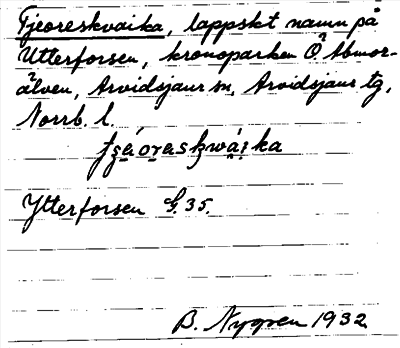 Tjeoreskvaika, lappskt namn på
Ytterforsen, kronoparken Ö. Abmor-
älven, Arvidsjaur sn, Arvidsjaur tg,
Norrb. l.
Ytterforsen G. 35.
B. Nygren 1932